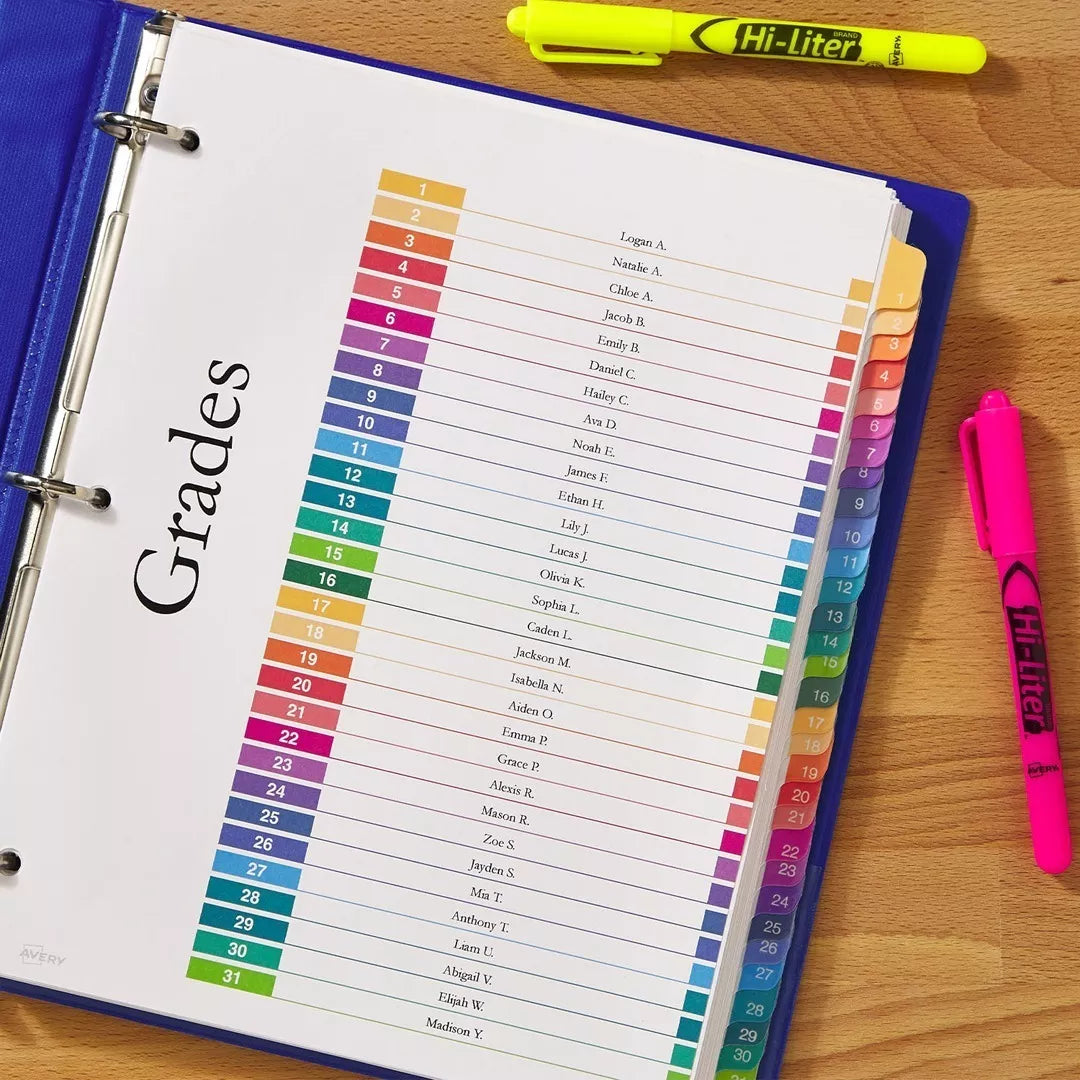 Hi-Liter
BRAND
AVERY
Grades
1 Logan A.
2 Natalie A.
3 Chloe A.
4 Jacob B.
5 Emily B.
6 Daniel C.
7 Hailey C.
8 Ava D.
9 Noah E.
10 James F.
11 Ethan H.
12 Lily J.
13 Lucas J.
14 Olivia K.
15 Sophia L.
16 Caden L.
17 Jackson M.
18 Isabella N.
19 Aiden O.
20 Emma P.
21 Grace P.
22 Alexis R.
23 Mason R.
24 Zoe S.
25 Jayden S.
26 Mia T.
27 Anthony T.
28 Liam U.
29 Abigail V.
30 Elijah W.
31 Madison Y.
AVERY
1
2
3
4
5
6
7
8
9
10
11
12
13
14
15
16
17
18
19
20
21
22
23
24
25
26
27
28
29
30
31
Hi-Liter
AVERY